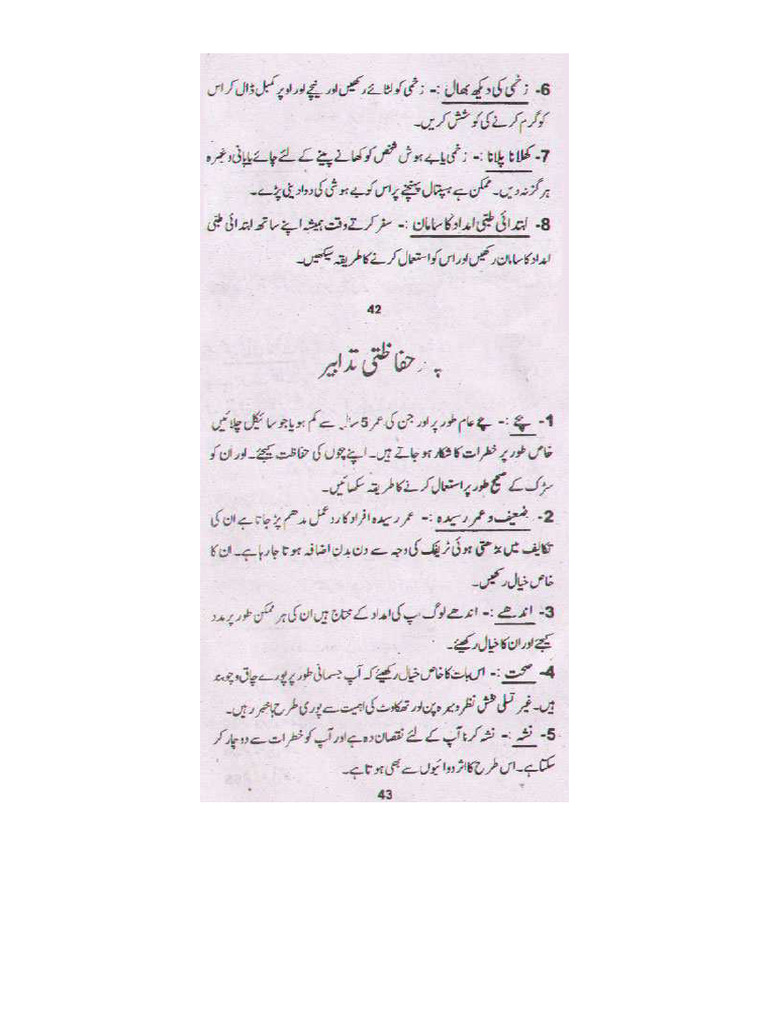 6- زخمی کی دیکھ بھال :- زخمی کو لٹائے رکھیں اور نیچے اور اوپر کمبل ڈال کر اس
کو گرم کرنے کی کوشش کریں۔
7- کھلانا پلانا :- زخمی یا بے ہوش شخص کو کھانے پینے کے لئے چائے یا پانی وغیرہ
ہرگز نہ دیں۔ ممکن ہے ہسپتال پہنچنے پر اس کو بے ہوشی کی دوا دینی پڑے۔
8- ابتدائی طبّی امداد کا سامان :- سفر کرتے وقت ہمیشہ اپنے ساتھ ابتدائی طبّی
امداد کا سامان رکھیں اور اس کو استعمال کرنے کا طریقہ سیکھیں۔
42
حفاظتی تدابیر
1- بچے :- بچے عام طور پر اور جن کی عمر 5 سال سے کم ہو یا جو سائیکل چلائیں
خاص طور پر خطرات کا شکار ہو جاتے ہیں۔ اپنے بچوں کی حفاظت کیجئے۔ اور ان کو
سڑک کے صحیح طور پر استعمال کرنے کا طریقہ سکھائیں۔
2- ضعیف و عمر رسیدہ :- عمر رسیدہ افراد کا ردعمل مدھم پڑ جاتا ہے ان کی
تکالیف میں بڑھتی ہوئی ٹریفک کی وجہ سے دن بدن اضافہ ہوتا جا رہا ہے۔ ان کا
خاص خیال رکھیں۔
3- اندھے :- اندھے لوگ آپ کی امداد کے محتاج ہیں ان کی ہر ممکن طور پر مدد
کیجئے اور ان کا خیال رکھئے۔
4- صحت :- اس بات کا خاص خیال رکھئے کہ آپ جسمانی طور پر پورے چاق و چوبند
ہیں۔ غیر تسلی بخش نظر و بہرہ پن اور تھکاوٹ کی اہمیت سے پوری طرح باخبر رہیں۔
5- نشہ :- نشہ کرنا آپ کے لئے نقصان دہ ہے اور آپ کو خطرات سے دوچار کر
سکتا ہے۔ اس طرح کا اثر دوائیوں سے بھی ہوتا ہے۔
43